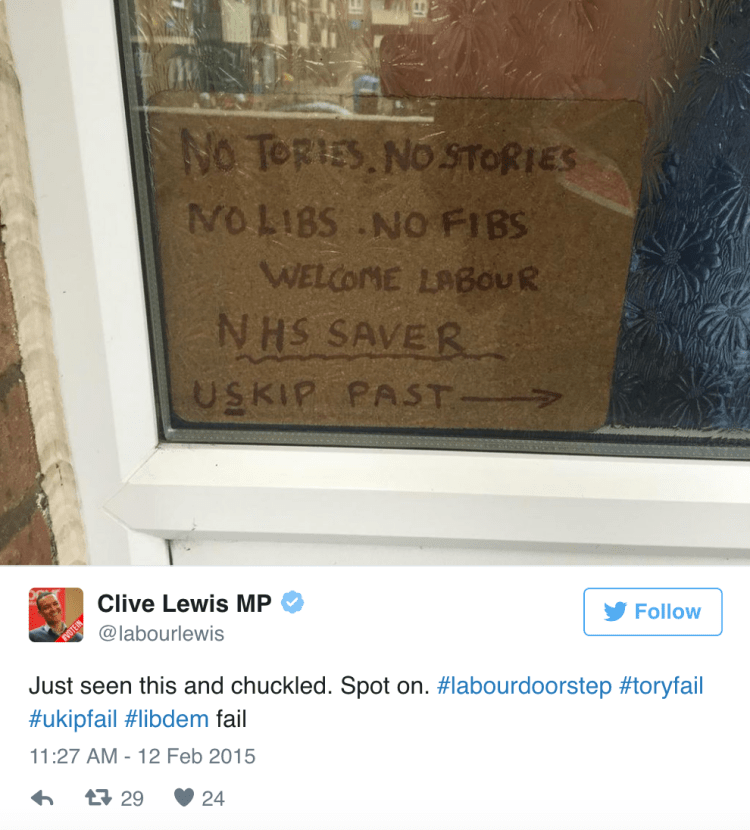 NO TORIES. NO STORIES
NO LIBS . NO FIBS
WELCOME LABOUR
NHS SAVER
USKIP PAST
Clive Lewis MP
@labourlewis
Follow
Just seen this and chuckled. Spot on. #labourdoorstep #toryfail
#ukipfail #libdem fail
11:27 AM - 12 Feb 2015
29 24